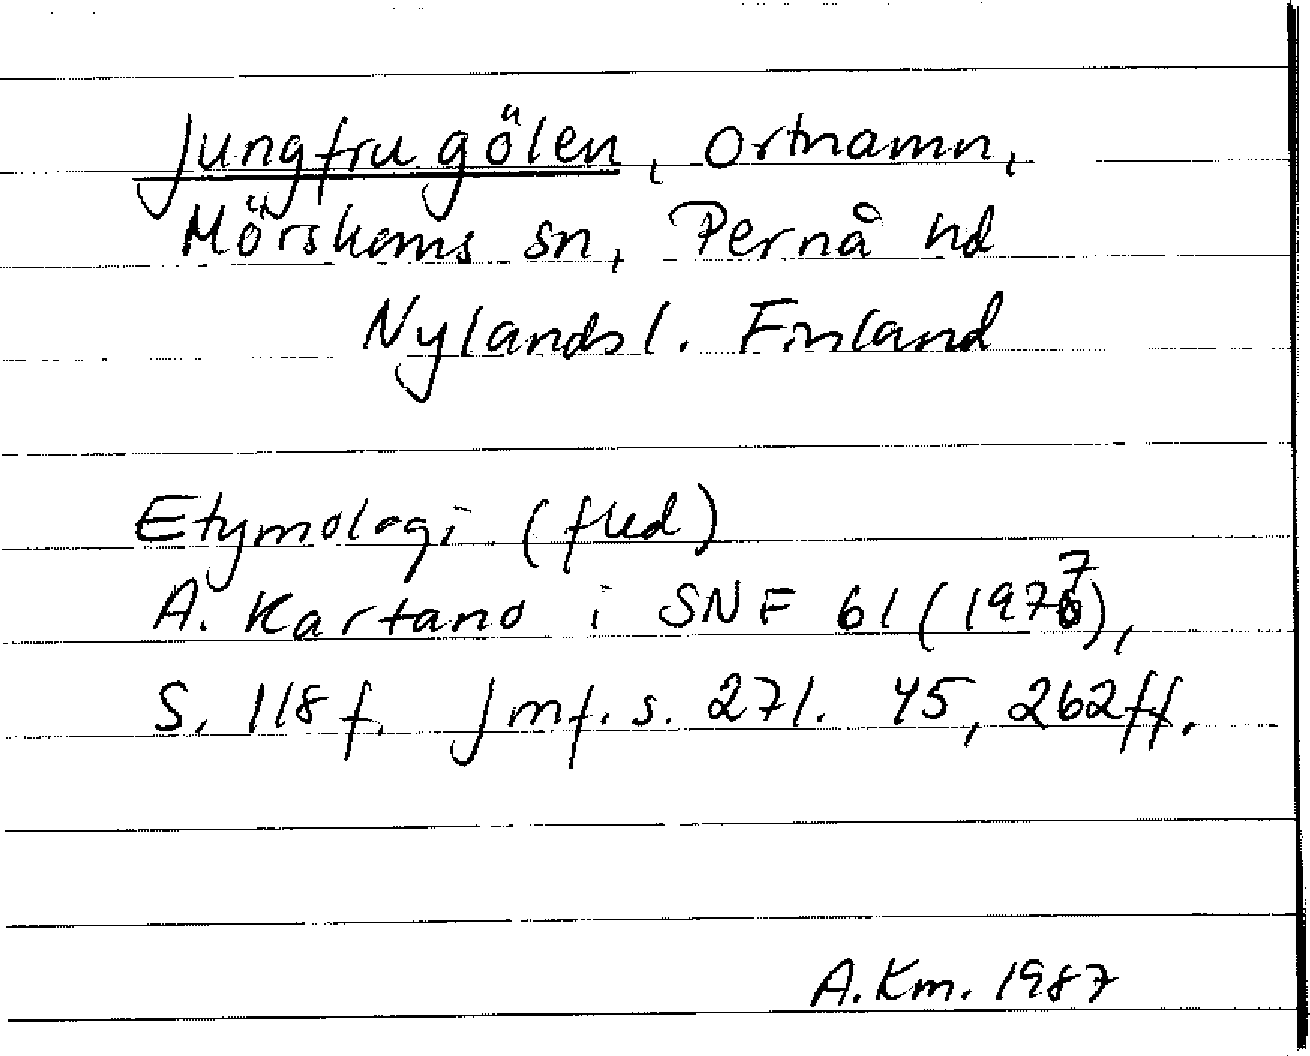 Jungfrugölen, ortnamn,
Mörskoms sn, Pernå hd
Nylandsl. Finland
Etymologi (fled)
A. Kartano i SNF 61 (1977),
S. 118 f. Jmf. s. 271. 45, 262ff.
A.Km. 1987